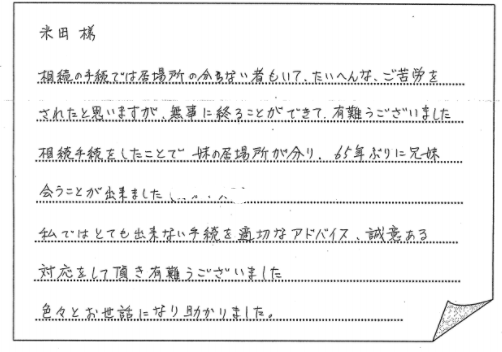 米田 様
相続の手続では居場所の分らない者もいて、たいへんな、ご苦労を
されたと思いますが、無事に終ることができて、有難うございました
相続手続をしたことで 妹の居場所が分り、65年ぶりに兄妹
会うことが出来ました
私ではとても出来ない手続を適切なアドバイス、誠意ある
対応をして頂き有難うございました
色々とお世話になり助かりました。